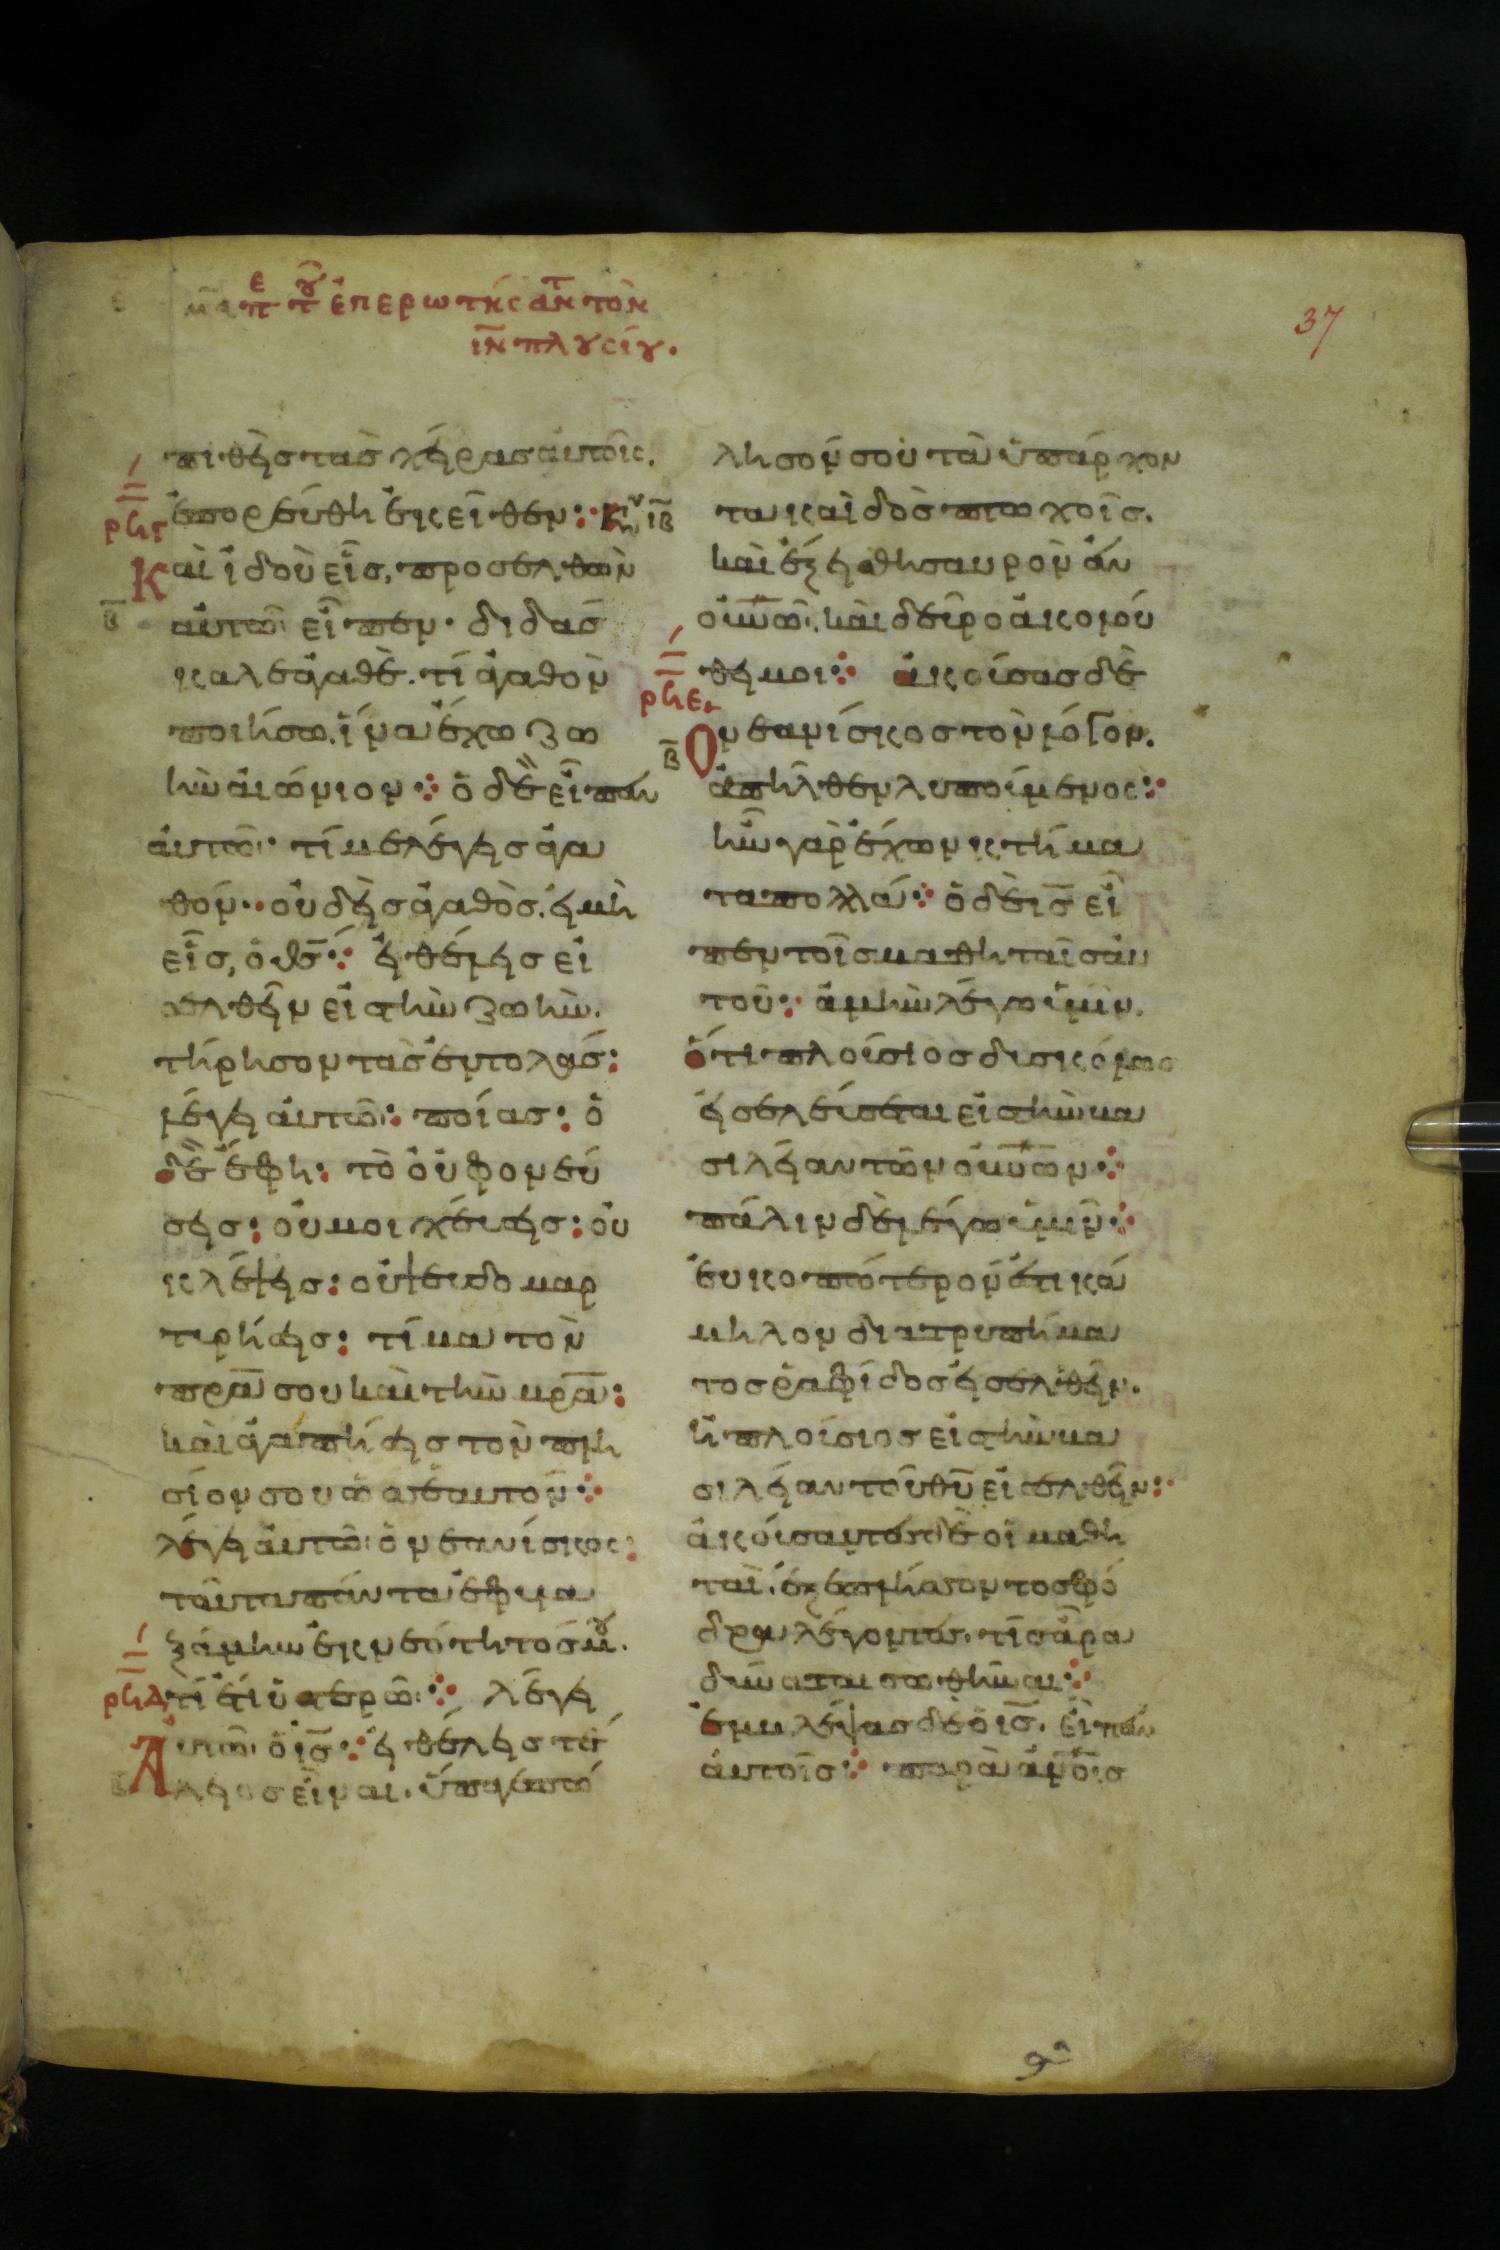 π̅ε̅ τ̅ο̅υ̅ ἐπερωτήσαντ τὸν
ι̅ν̅ πλουσίου.
37
πιθεὶς τὰς χείρας αὐτοῖς.
ἐπορεύθη ἐκεῖθεν: Κυ ιβ
ρηγ
Καὶ ἰδοὺ εἷς, προσελθὼν
αὐτῶ εἶπεν· διδάσ
καλε ἀγαθὲ. τί ἀγαθὸν
ποιήσω, ἵνα ἔχω ζω
ὴν αἰώνιον: ὁ δὲ εἶπεν
αὐτῶ· τί με λέγεις ἀγα
θόν· οὐδεὶς ἀγαθὸς, εἰ μὴ
εἷς, ὁ θ̅ς̅: εἰ θέλεις εἰ
σελθεῖν εἰς τὴν ζωὴν.
τήρησον τὰς ἐντολάς:
λέγει αὐτῶ: ποίας: ὁ
δὲ ἔφη: τὸ οὐ φονεύ
σεις: οὐ μοιχεύσεις: οὐ
κλέψεις: οὐ ψευδομαρ
τυρήσεις: τίμα τὸν
π̅ρ̅α̅ σου καὶ τὴν μ̅ρ̅α̅:
καὶ ἀγαπήσεις τὸν πλη
σίον σου ὡς ἑαυτόν:
λέγει αὐτῶ ὁ νεανίσκος:
ταῦτα πάντα ἐφυλα
ξάμην ἐκ νεότητός μου.
ρηδ
τί ἔτι ὑστερῶ: λέγει
Αὐτῶ ὁ ι̅ς̅: εἰ θέλεις τέ
λειος εἶναι. ὕπαγε πώ
λησόν σου τὰ ὑπάρχον
τα καὶ δὸς πτωχοῖς.
καὶ ἕξεις θησαυρὸν ἐν
ο̅υ̅ν̅ῶ̅. καὶ δεῦρο ἀκολού
θει μοι: ἀκούσας δὲ
ρηε
Ὁ νεανίσκος τὸν λόγον.
ἀπῆλθεν λυπούμενος:
ἦν γὰρ ἔχων κτήμα
τα πολλά: ὁ δὲ ι̅ς̅ εἶ
πεν τοῖς μαθηταῖς αὐ
τοῦ: ἀμὴν λέγω ὑμῖν.
ὅτι πλούσιος δυσκόλως
εἰσελεύσεται εἰς τὴν βα
σιλείαν τῶν ο̅υ̅ν̅ῶ̅ν̅:
πάλιν δὲ λέγω ὑμῖν:
εὐκοπώτερόν ἐστι κά
μηλον διὰ τρυπήμα
τος ῥαφίδος εἰσελθεῖν.
ἢ πλούσιος εἰς τὴν βα
σιλείαν τοῦ θ̅υ̅ εἰσελθεῖν:
ἀκούσαντες δὲ οἱ μαθη
ταὶ, ἐξεπλήσσοντο σφό
δρα λέγοντες. τίς ἄρα
δύναται σωθῆναι:
ἐμβλέψας δὲ ὁ ι̅ς̅. εἶπεν
αὐτοῖς: παρὰ ἀ̅ν̅ο̅ι̅ς̅